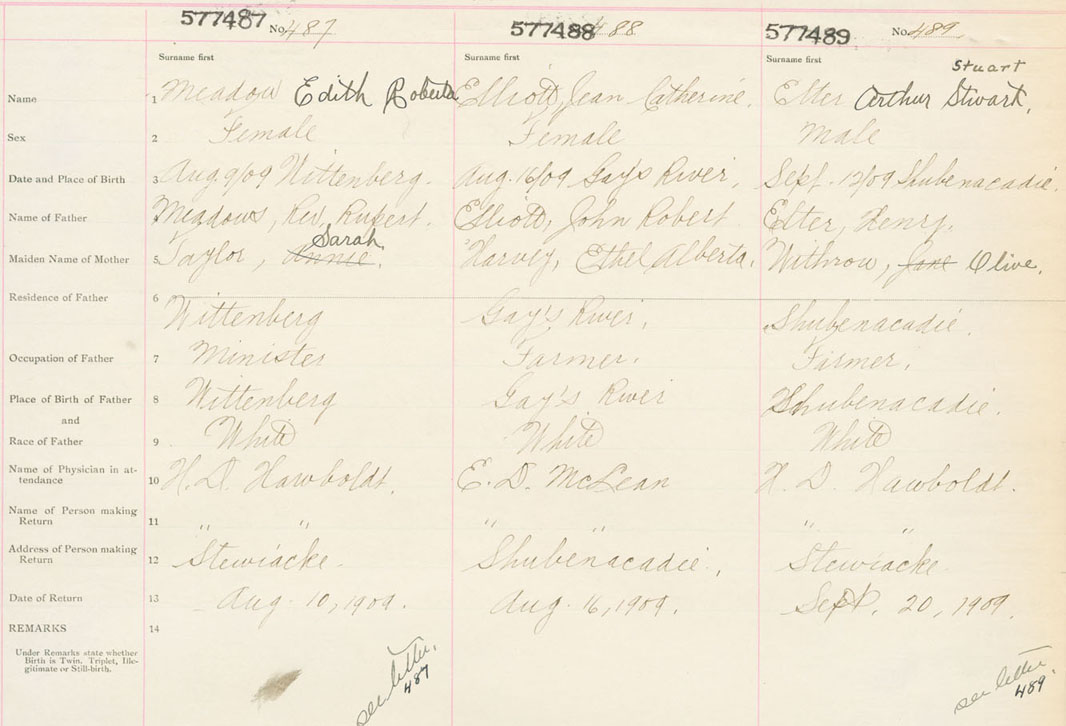 577487 No. 487 577488 488 577489 No. 489
Surname first Surname first Surname first
Stuart
Name 1 Meadow Edith Roberta Elliott, Jean Catherine. Elter Arthur Stwart,
Sex 2 Female Female Male
Date and Place of Birth 3 Aug. 9/09 Wittenberg. Aug. 16/09 Gay's River, Sept. 12/09 Shubenacadie.
Name of Father Meadows, Rev. Rupert. Elliott, John Robert Elter, Henry.
Sarah
Maiden Name of Mother 5 Taylor, Annie. Harvey, Ethel Alberta. Withrow, Jane Olive.
Residence of Father 6
Wittenberg Gay's River, Shubenacadie.
Occupation of Father 7 Minister Farmer. Farmer.
Place of Birth of Father 8 Wittenberg Gay's River Shubenacadie.
and
Race of Father 9 White White White
Name of Physician in at-
tendance 10 H. D. Hawboldt. E. D. McLean H. D. Hawboldt.
Name of Person making
Return 11 " " " " " "
Address of Person making
Return 12 Stewiacke. Shubenacadie., Stewiacke.
Date of Return 13 Aug. 10, 1909. Aug. 16, 1909. Sept. 20, 1909.
REMARKS 14
Under Remarks state whether
Birth is Twin. Triplet, Ille-
gitimate or Still-birth.
see letter. 487
see letter 489